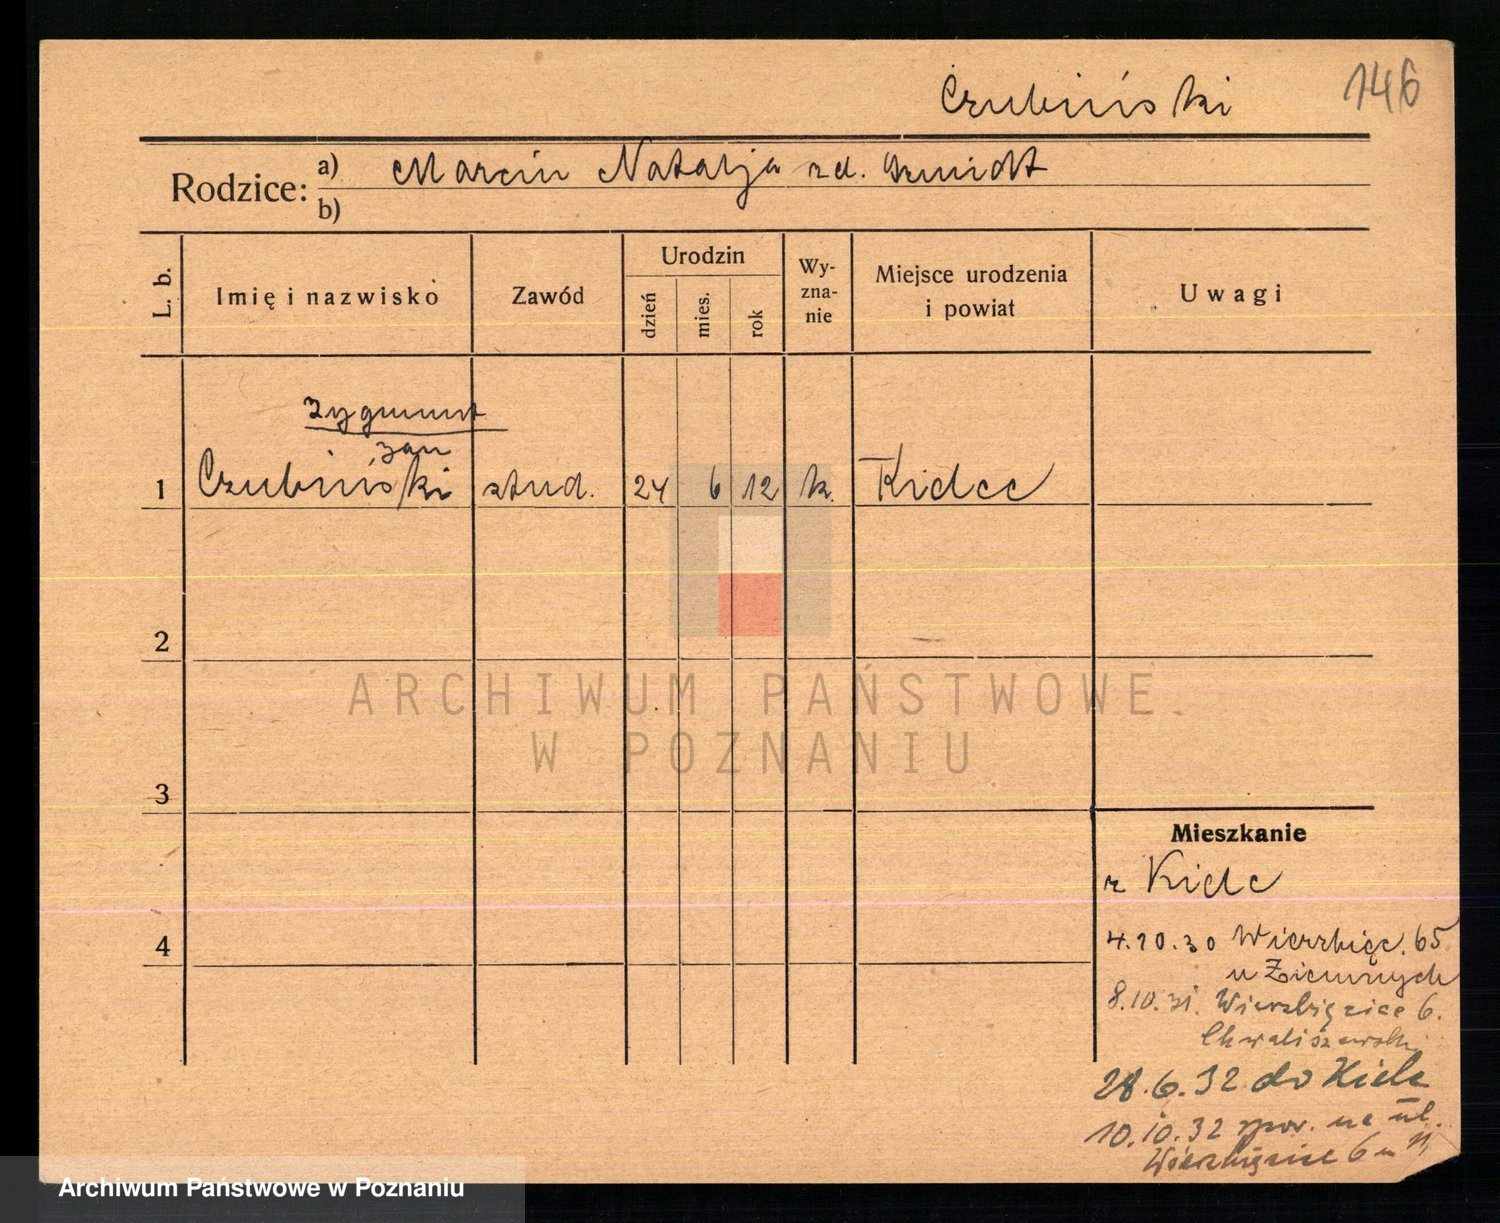 146
Czubiński
Rodzice:
a) Marcin Natalja zd. Szmidt
b)
L. b.
Imię i nazwisko
Zawód
Urodzin
dzień
mies.
rok
Wy-
zna-
nie
Miejsce urodzenia
i powiat
Uwagi
Zygmunt
Jan
1 Czubiński stud. 24 6 12 k. Kielce
2
3
4
Mieszkanie
z Kielc
4.10.30 Wierzbięc. 65
u Ziemnych
8.10.31. Wierzbięcice 6.
28.6.32 do Kielc
10.10.32 spor. na ul.
Wierzbięcice 6
ARCHIWUM PAŃSTWOWE
W POZNANIU
Archiwum Państwowe w Poznaniu